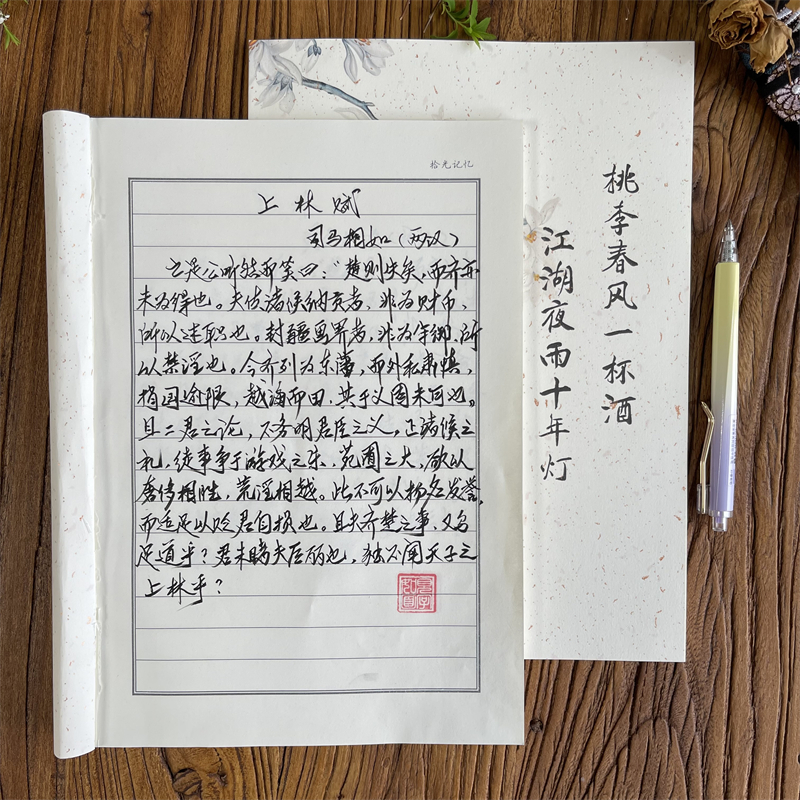 拾光记忆
上林赋
司马相如（两汉）
亡是公听然而笑曰：“楚则失矣，而齐亦
未为得也。夫使诸侯纳贡者，非为财币，
所以述职也。封疆画界者，非为守御，所
以禁淫也。今齐列为东藩，而外私肃慎，
捐国逾限，越海而田，其于义固未可也。
且二君之论，不务明君臣之义，正诸侯之
礼，徒事争于游戏之乐，苑囿之大，欲以
奢侈相胜，荒淫相越。此不可以扬名发誉，
而适足以贬君自损也。且夫齐楚之事，又乌
足道乎？君未睹夫巨丽也，独不闻天子之
上林乎？
桃李春风一杯酒
江湖夜雨十年灯